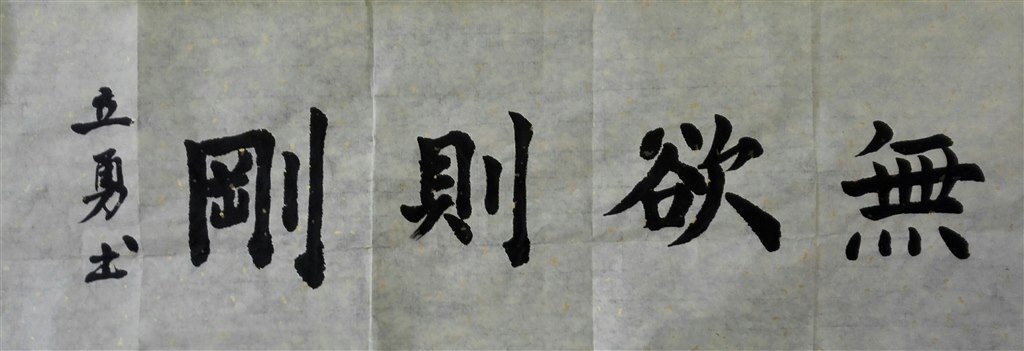 無欲則剛
立勇书